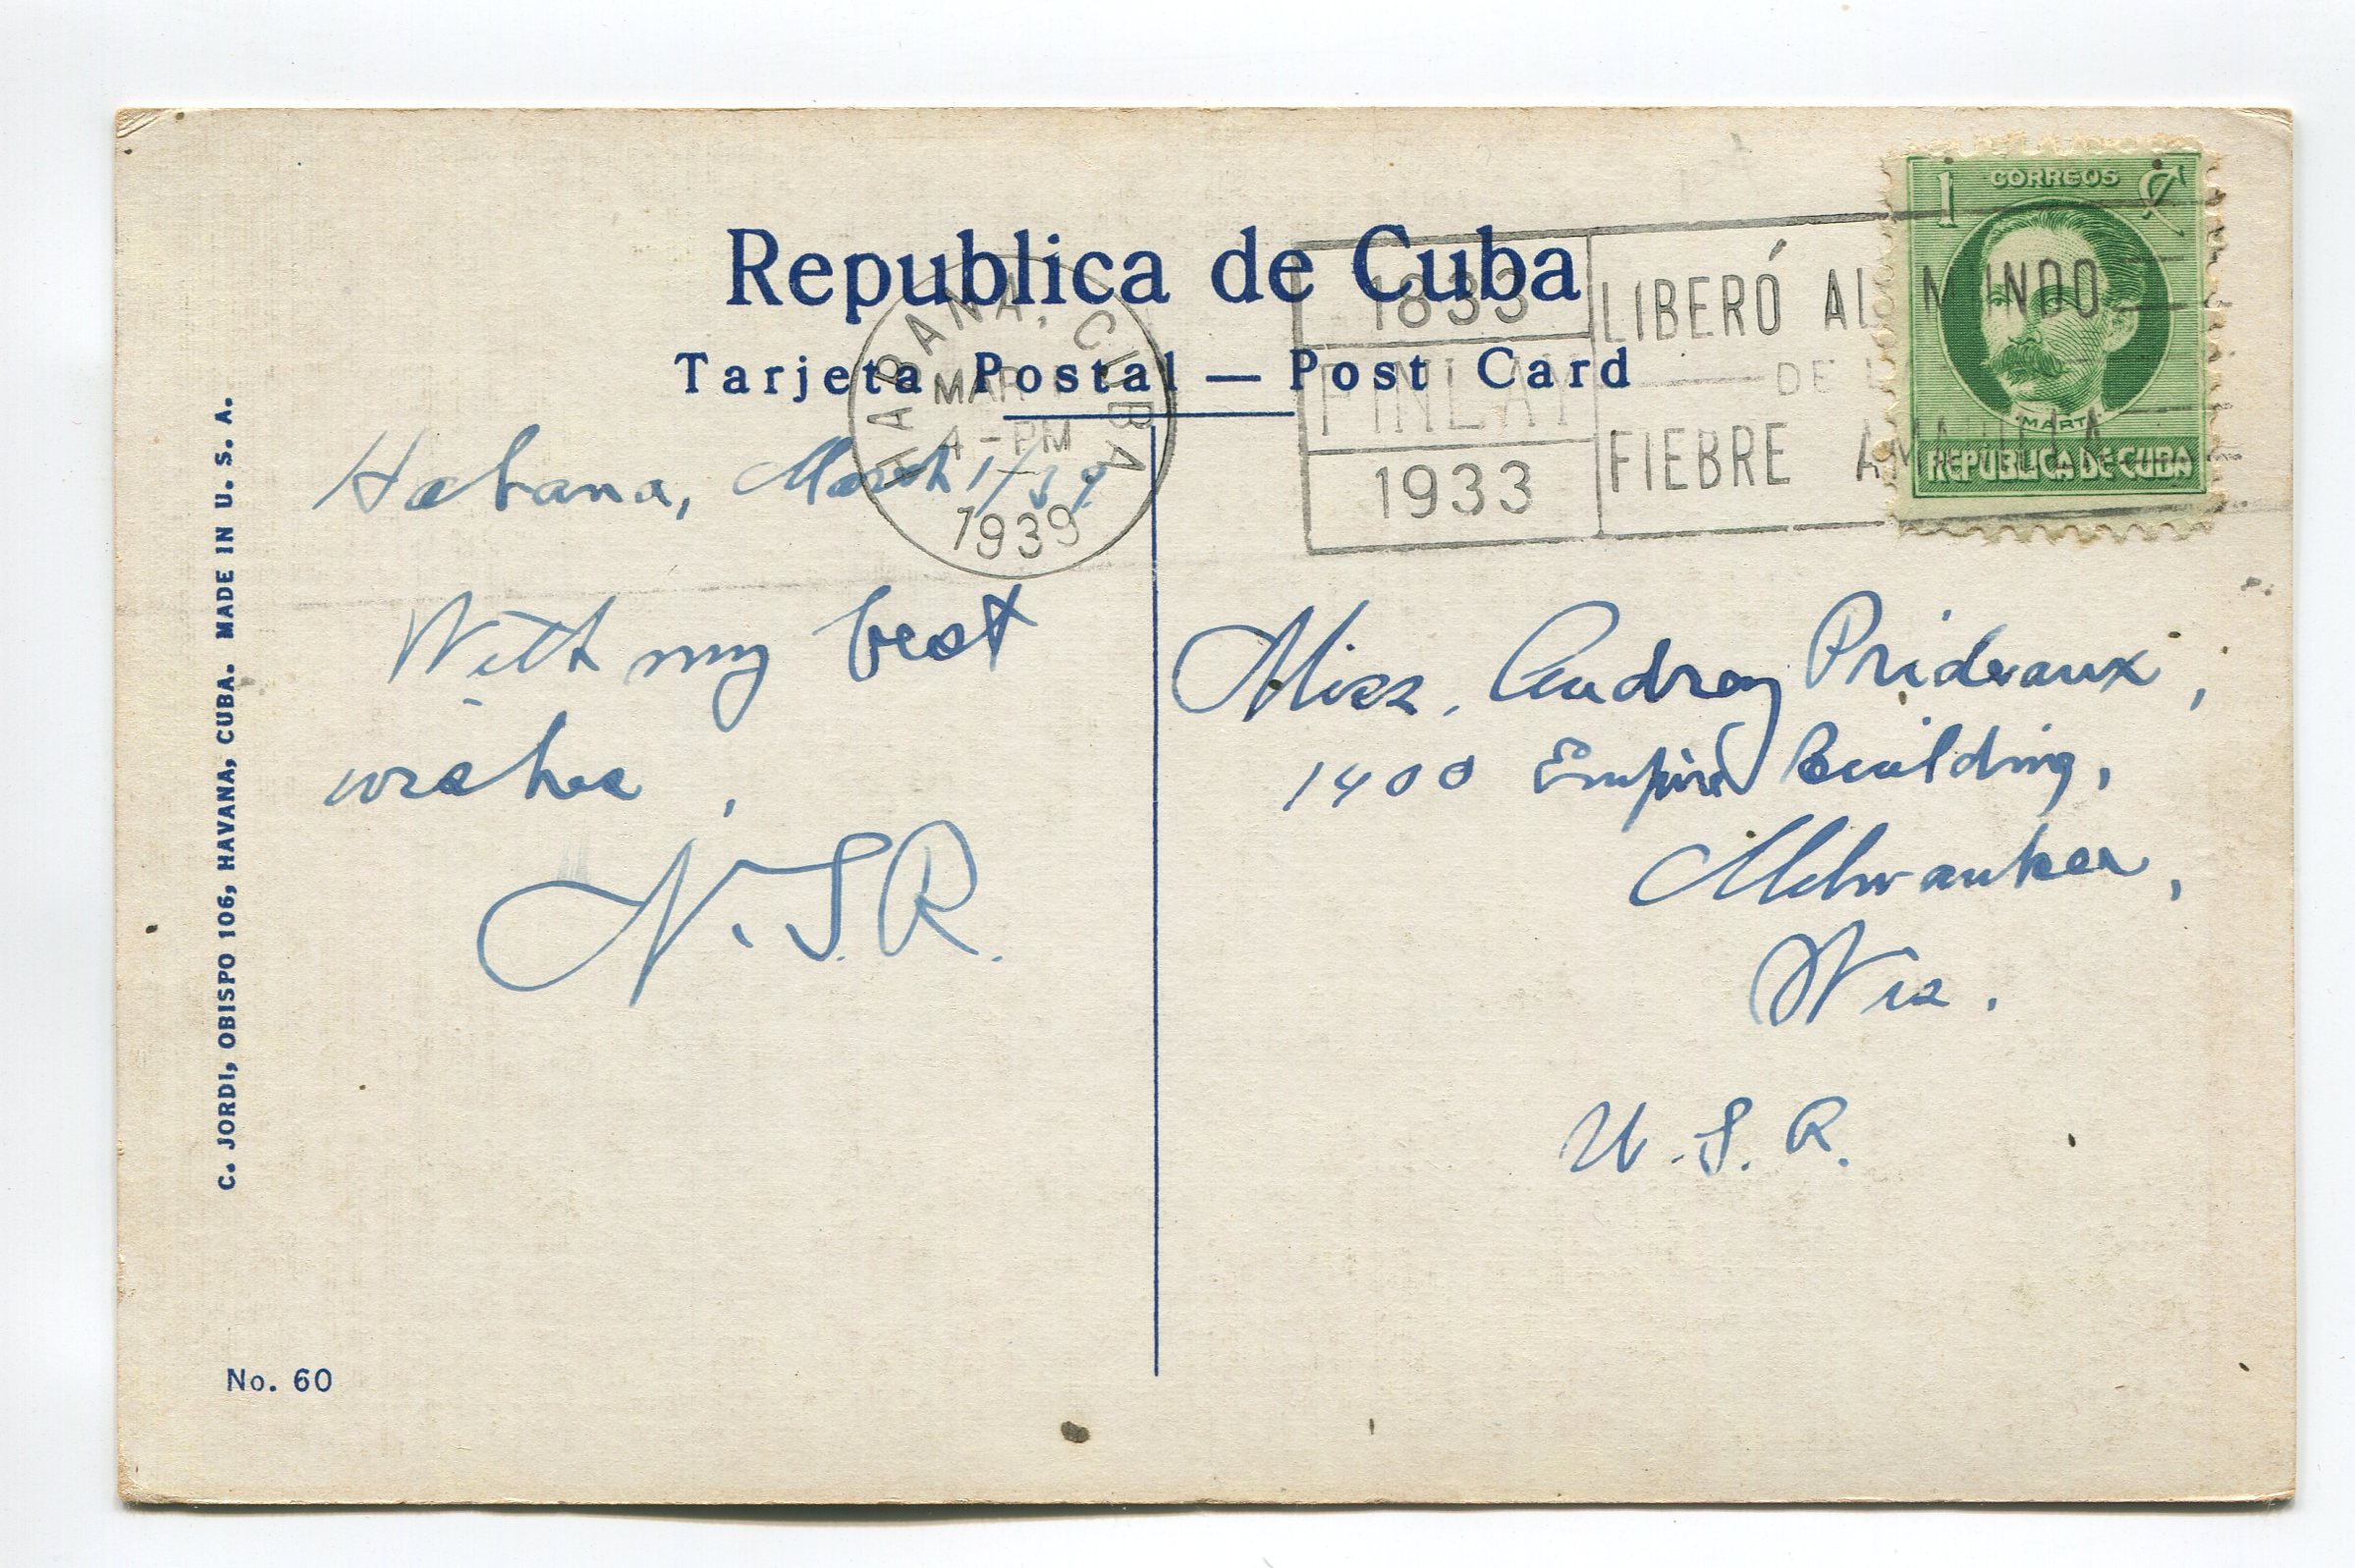 Republica de Cuba
Tarjeta Postal — Post Card
HABANA, CUBA
MAR 1
4 - PM
1939
1833
FINLAY
1933
LIBERÓ AL MUNDO
DE LA
FIEBRE AMARILLA
1 CORREOS ¢
MARTI
REPUBLICA DE CUBA
Habana, March 1/39
With my best
wishes,
N.S.R.
Miss. Audrey Prideaux,
1400 Empire Building,
Milwaukee,
Wis.
U.S.A.
C. JORDI, OBISPO 106, HAVANA, CUBA. MADE IN U. S. A.
No. 60